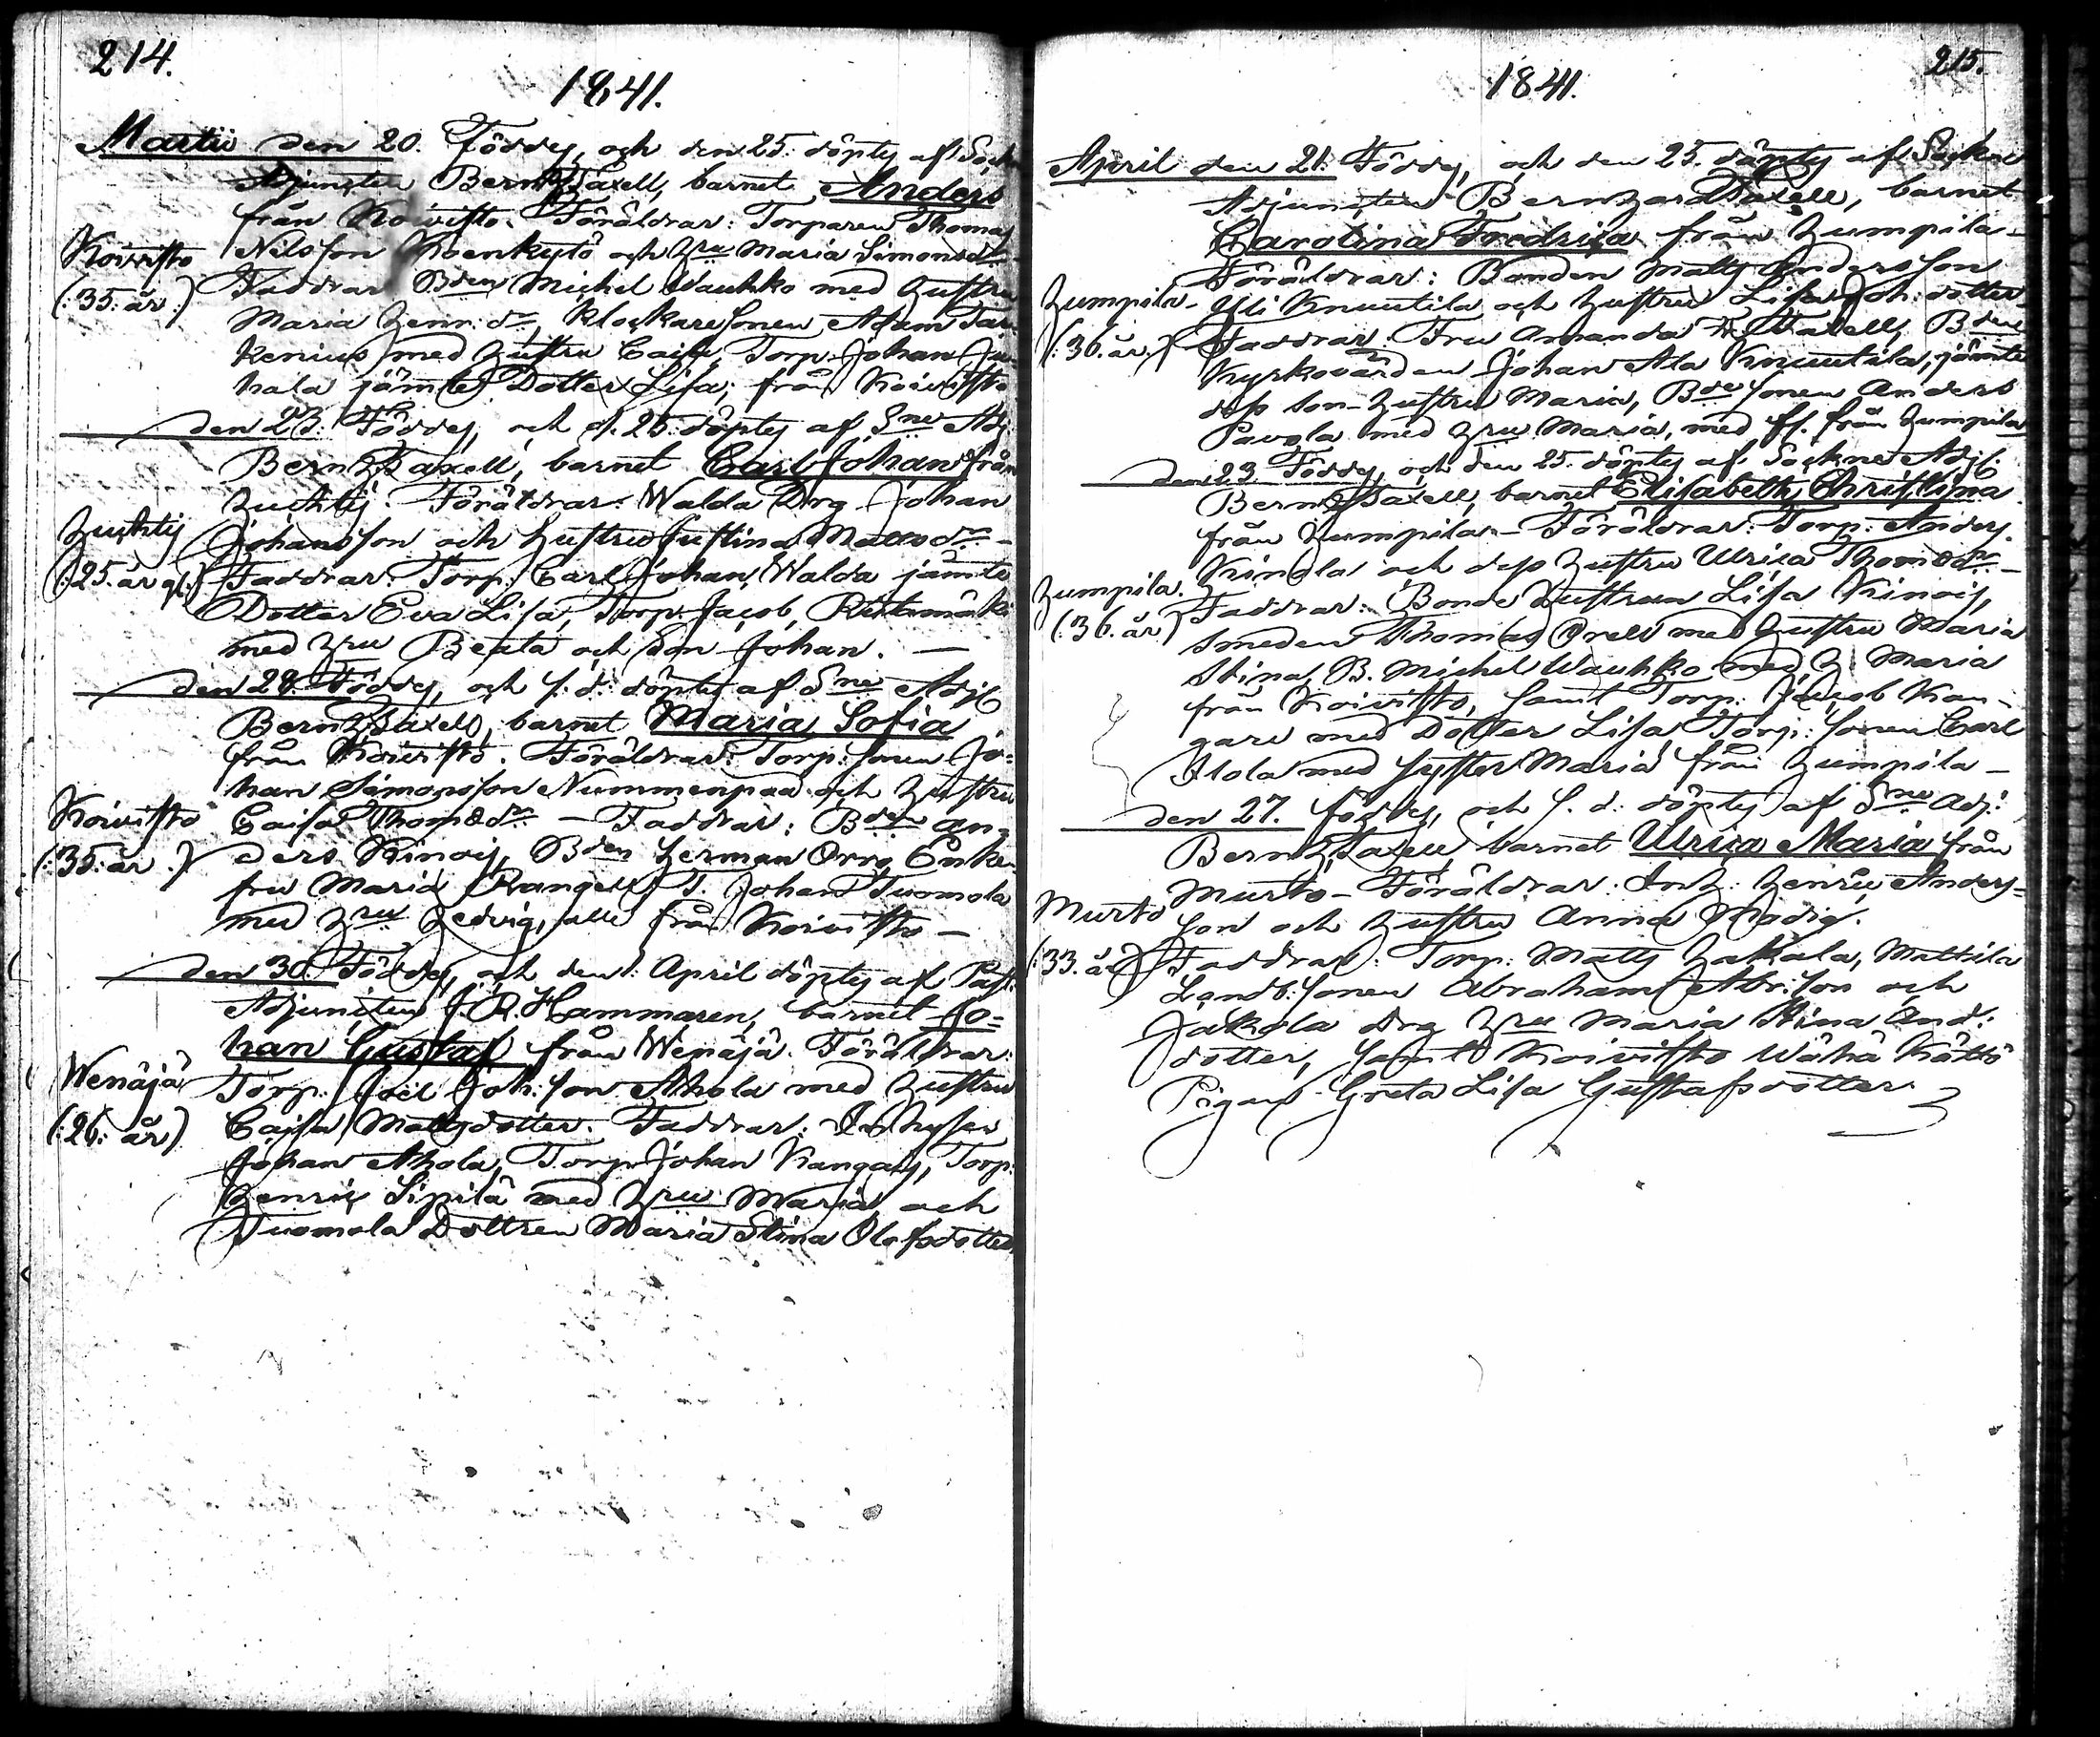 214.
1841.
Martii den 20. Föddes, och den 25. döptes af Sockne
Adjuncten Bernh. Taxell, barnet Anders
från Koivisto. Föräldrar: Torparen Thomas
Koivisto Nilsson Koenkytö och Hru Maria Simonsdr
(:35. år:) Faddrar Bden Michel Wauhko med Hustru
Maria Henr: dr, klockaresonen Adam Tac
kenius med Hustru Caisa, Torp. Johan Ju
hala jämte Dotter Lisa, från Koivisto
den 23. Föddes, och d. 25. döptes af Sne Adj:
Bernh. Taxell, barnet Carl Johan från
Huhtij. Föräldrar: Walda Drg Johan
Huhtij Johansson och Hustru Justina Mattsdr –
(:25. år gl:) Faddrar: Torp. Carl Johan Walda jämte
Dotter Eva Lisa, Torp. Jacob Ristimäki
med Hru Beata och Son Johan. –
den 28. Föddes, och s: d: döptes af Sne Adj:
Bernh. Taxell, barnet Maria Sofia
från Koivisto. Föräldrar: Torp: sonen Jo=
han Simonsson Nummenpää och Hustru
Koivisto Caisa Thomædr – Faddrar: Bden An=
(:35: år:) ders Kinoij, Bden Herman Orre, Enke
fru Maria Rangell, T. Johan Tuomola
med Hru Hedvig, alle från Koivisto –
den 30. Föddes, och den 1: April döptes af Past:
Adjuncten J. R. Hammaren, barnet Jo=
han Gustaf från Wenäjä. Föräldrar:
Wenäjä Torp. Joel Joh: son Ahola med Hustru
(:26: år) Caisa Mattsdotter. Faddrar: Inhyses
Johan Ahola, Torp. Johan Kangas, Torp.
Henric Sipilä med Hru Maria, och
Tuomola Dottren Maria Stina Olofsdotter
215.
1841.
April den 21. Föddes, och den 25. döptes af Sockne
Adjuncten Bernhard Taxell, barnet
Carolina Fredrica från Humpila –
Föräldrar: Bonden Matts Andersson
Humpila – Yli Knuutila och Hustru Lisa Joh: dotter
(:36. år:) Faddrar: Fru Amanda F. Taxell, Bden
Kyrkovärden Johan Ala Knuutila, jämte
dess Son-Hustru Maria, Bde Sonen Anders
Pavola med Hru Maria, med fl. från Humpila
den 23. Föddes, och den 25. döptes af Sockne Adj:
Bernh. Taxell, barnet Elisabeth Christina
från Humpila – Föräldrar: Torp. Anders
Humpila. Kinola och dess Hustru Ulrica Thomædr –
(:36. år) Faddrar: Bonde Hustrun Lisa Kinoij,
Smeden Thomas Orell med Hustru Maria
Stina, B. Michel Wauhko med H. Maria
från Koivisto, samt Torp. Jacob Kan=
gare med Dotter Lisa Torp: sonen Carl
Ilola med Syster Maria från Humpila –
den 27. föddes, och s. d: döptes af Sne Adj:
Bernh. Taxell, barnet Ulrica Maria från
Murto – Föräldrar: Inh: Henric Anders=
Murto son och Hustru Anna Modig.
(:33. år) Faddrar: Torp: Matts Hakala, Mattila
Landb: sonen Abraham Abr: son och
Jakola Drg Hru Maria Stina And:
dotter, samt Koivisto Wähä Kättö
Pigan Greta Lisa Gustafsdotter